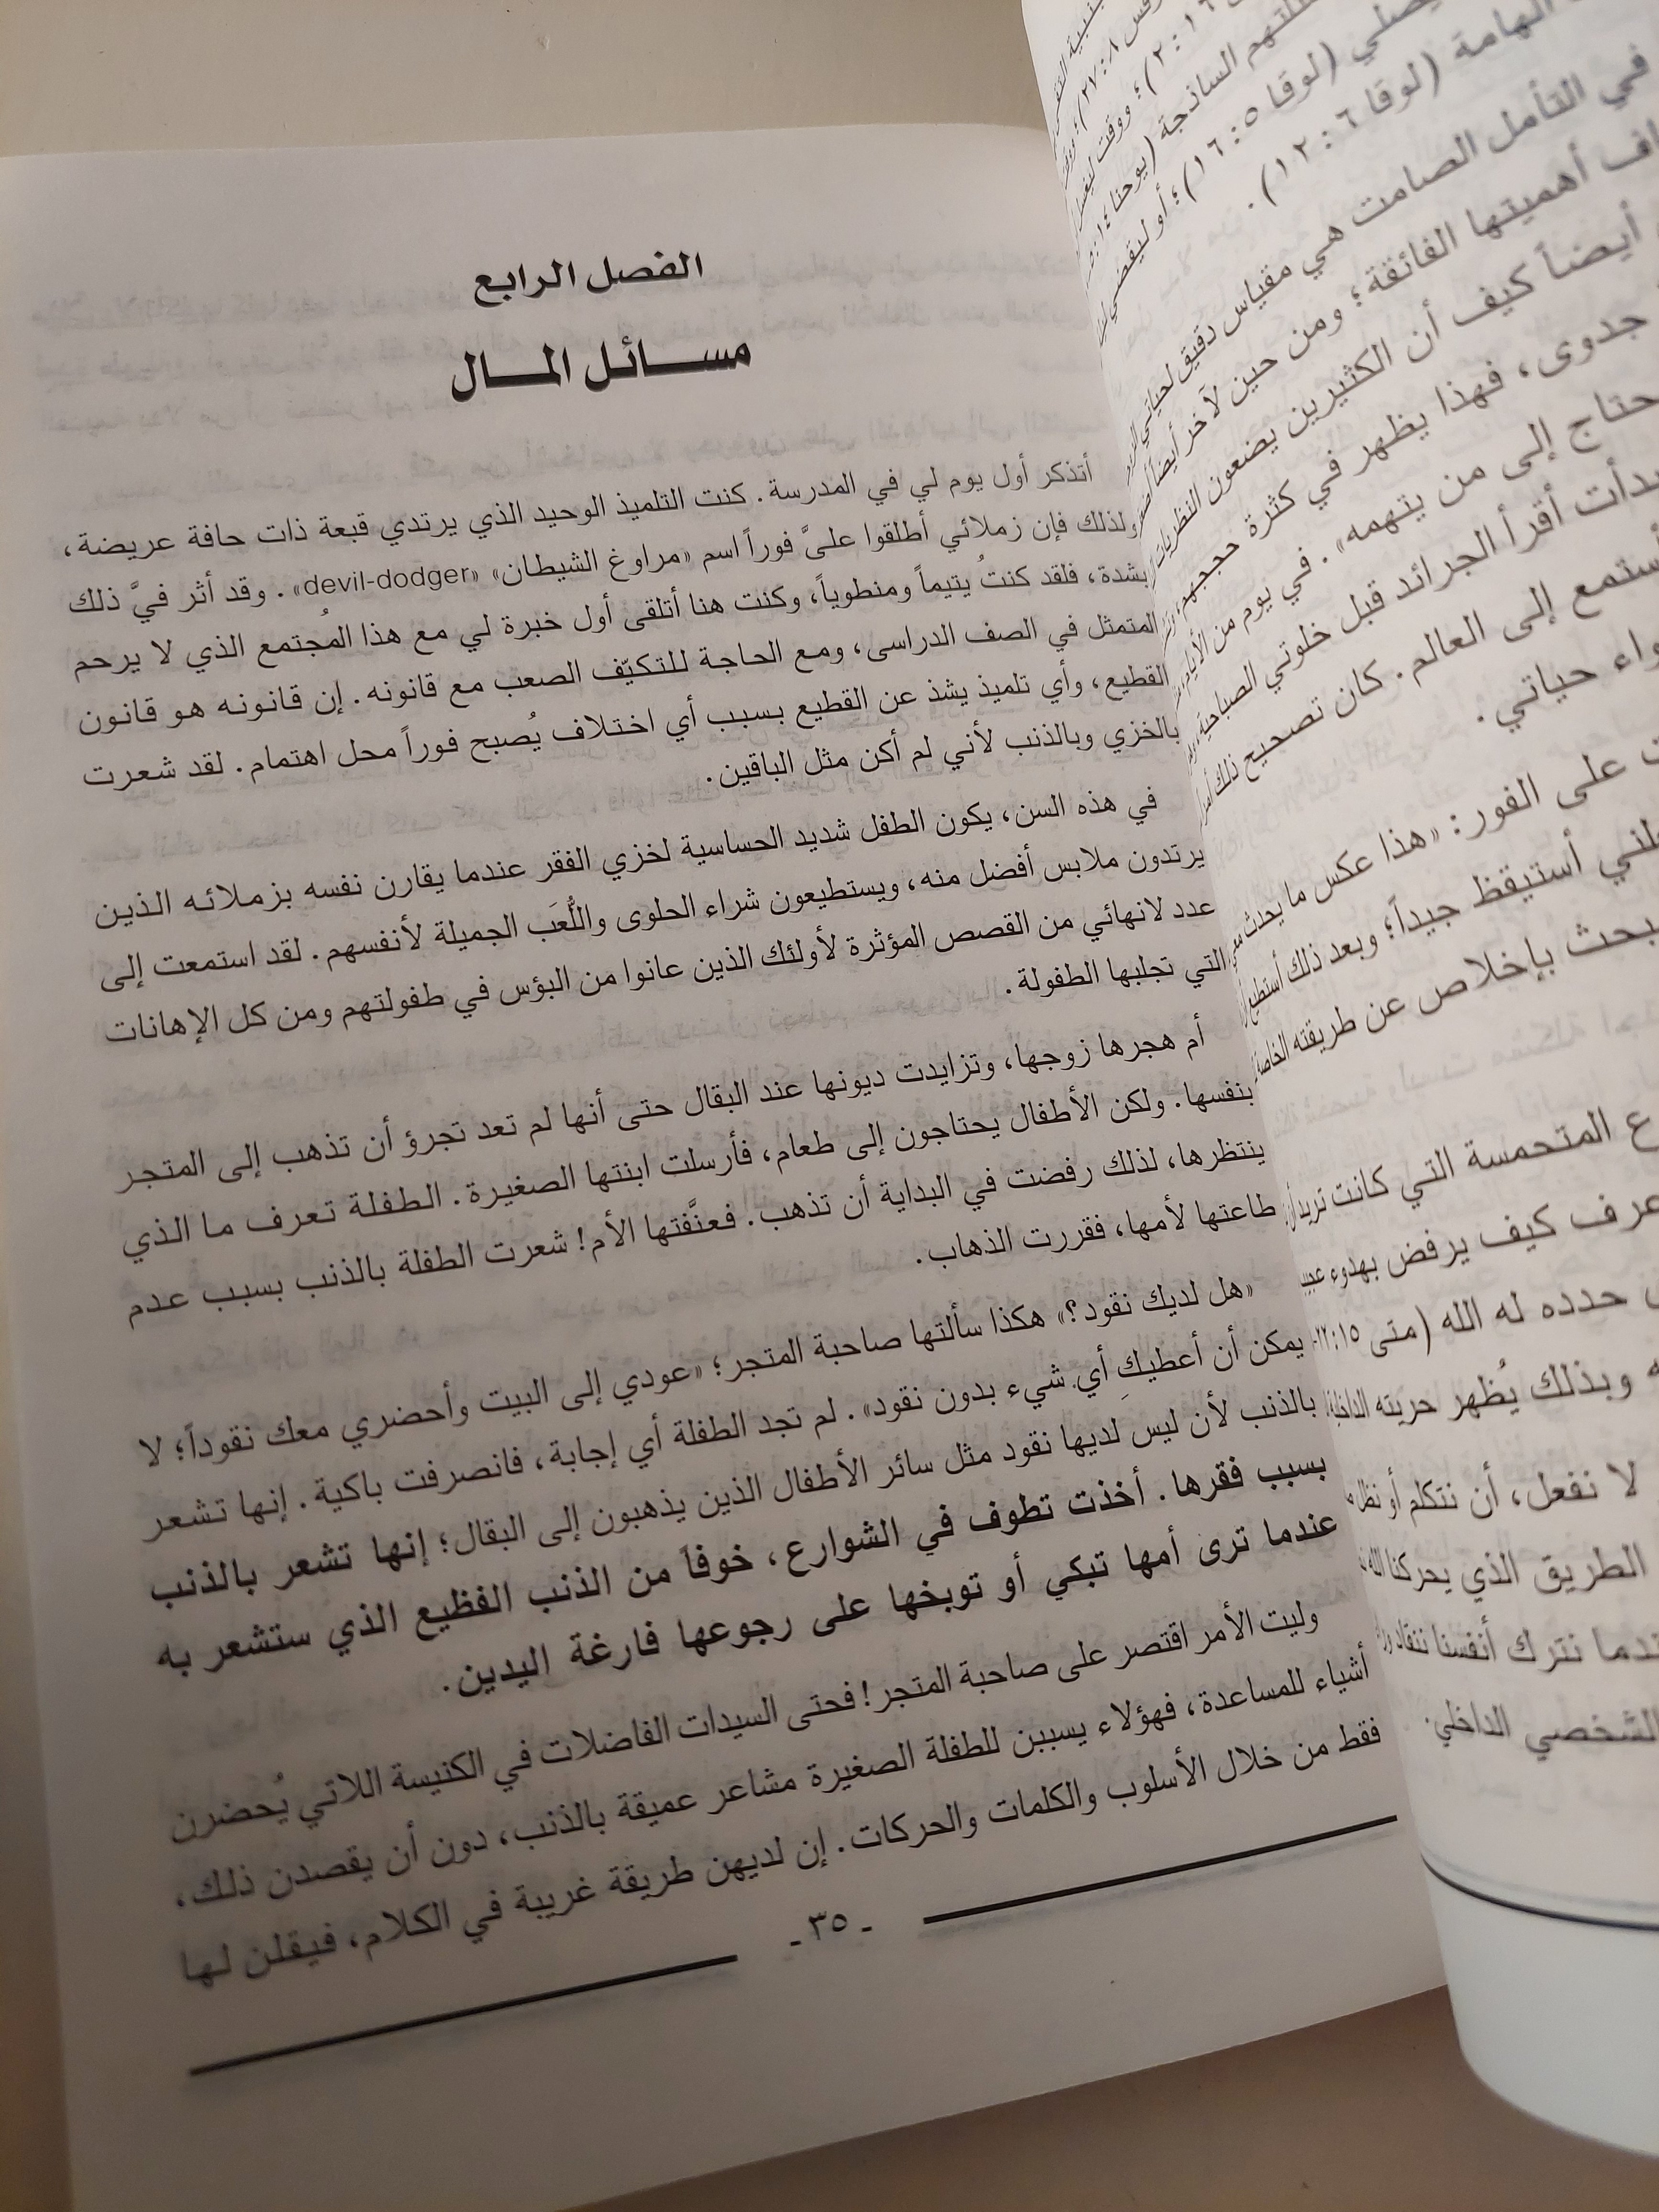 لتهم الساذجة (يوحنا
يصلي (لوقا ٥ : ١٦)؛ أو ليقضي
الهامة (لوقا ٦ : ١٢).
في التأمل الصامت هي مقياس دقيق لحياتي
أهميتها الفائقة؛ ومن حين لآخر أيضاً
أيضاً كيف أن الكثيرين يضعون النظريات
جدوى، فهذا يظهر في كثرة حججهم،
حتاج إلى من يتهمه». في يوم من الأيام،
بدأت أقرأ الجرائد قبل خلوتي الصباحية،
أستمع إلى العالم. كان تصحيح ذلك
حياتي.
على الفور: «هذا عكس ما يحدث معي
أستيقظ جيداً؛ وبعد ذلك أستطيع
بحث بإخلاص عن طريقته الخاصة
المتحمسة التي كانت تريد أن
عرف كيف يرفض بهدوء
حدده له الله (متى ١٥:
وبذلك يُظهر حريته الداخلية
لا نفعل، أن نتكلم أو نظل
الطريق الذي يحركنا الله
ندما نترك أنفسنا ننقاد
الشخصي الداخلي.
الفصل الرابع
مسائل المال
أتذكر أول يوم لي في المدرسة. كنت التلميذ الوحيد الذي يرتدي قبعة ذات حافة عريضة،
ولذلك فإن زملائي أطلقوا علىَّ فوراً اسم «مراوغ الشيطان» «devil-dodger». وقد أثر فيَّ ذلك
بشدة، فلقد كنتُ يتيماً ومنطوياً، وكنت هنا أتلقى أول خبرة لي مع هذا المُجتمع الذي لا يرحم
المتمثل في الصف الدراسى، ومع الحاجة للتكيّف الصعب مع قانونه. إن قانونه هو قانون
القطيع، وأي تلميذ يشذ عن القطيع بسبب أي اختلاف يُصبح فوراً محل اهتمام. لقد شعرت
بالخزي وبالذنب لأني لم أكن مثل الباقين.
في هذه السن، يكون الطفل شديد الحساسية لخزي الفقر عندما يقارن نفسه بزملائه الذين
يرتدون ملابس أفضل منه، ويستطيعون شراء الحلوى واللُّعَب الجميلة لأنفسهم. لقد استمعت إلى
عدد لانهائي من القصص المؤثرة لأولئك الذين عانوا من البؤس في طفولتهم ومن كل الإهانات
التي تجلبها الطفولة.
أم هجرها زوجها، وتزايدت ديونها عند البقال حتى أنها لم تعد تجرؤ أن تذهب إلى المتجر
بنفسها. ولكن الأطفال يحتاجون إلى طعام، فأرسلت ابنتها الصغيرة. الطفلة تعرف ما الذي
ينتظرها، لذلك رفضت في البداية أن تذهب. فعنَّفتها الأم! شعرت الطفلة بالذنب بسبب عدم
طاعتها لأمها، فقررت الذهاب.
«هل لديك نقود؟» هكذا سألتها صاحبة المتجر؛ «عودي إلى البيت وأحضري معك نقوداً؛ لا
يمكن أن أعطيكِ أي شيء بدون نقود». لم تجد الطفلة أي إجابة، فانصرفت باكية. إنها تشعر
بالذنب لأن ليس لديها نقود مثل سائر الأطفال الذين يذهبون إلى البقال؛ إنها تشعر بالذنب
بسبب فقرها. أخذت تطوف في الشوارع، خوفاً من الذنب الفظيع الذي ستشعر به
عندما ترى أمها تبكي أو توبخها على رجوعها فارغة اليدين.
وليت الأمر اقتصر على صاحبة المتجر! فحتى السيدات الفاضلات في الكنيسة اللاتي يُحضرن
أشياء للمساعدة، فهؤلاء يسببن للطفلة الصغيرة مشاعر عميقة بالذنب، دون أن يقصدن ذلك،
فقط من خلال الأسلوب والكلمات والحركات. إن لديهن طريقة غريبة في الكلام، فيقلن لها
- ٣٥ -